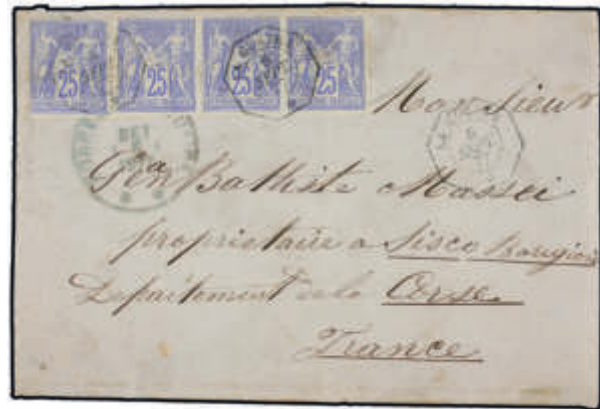 25 25 25 25
Monsieur
Gian Batthiste Massei
propriétaire a Sisco
Département de la Corse
France